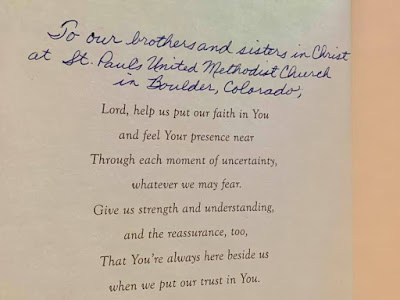 To our brothers and sisters in Christ
at St. Pauls United Methodist Church
in Boulder, Colorado,
Lord, help us put our faith in You
and feel Your presence near
Through each moment of uncertainty,
whatever we may fear.
Give us strength and understanding,
and the reassurance, too,
That You're always here beside us
when we put our trust in You.